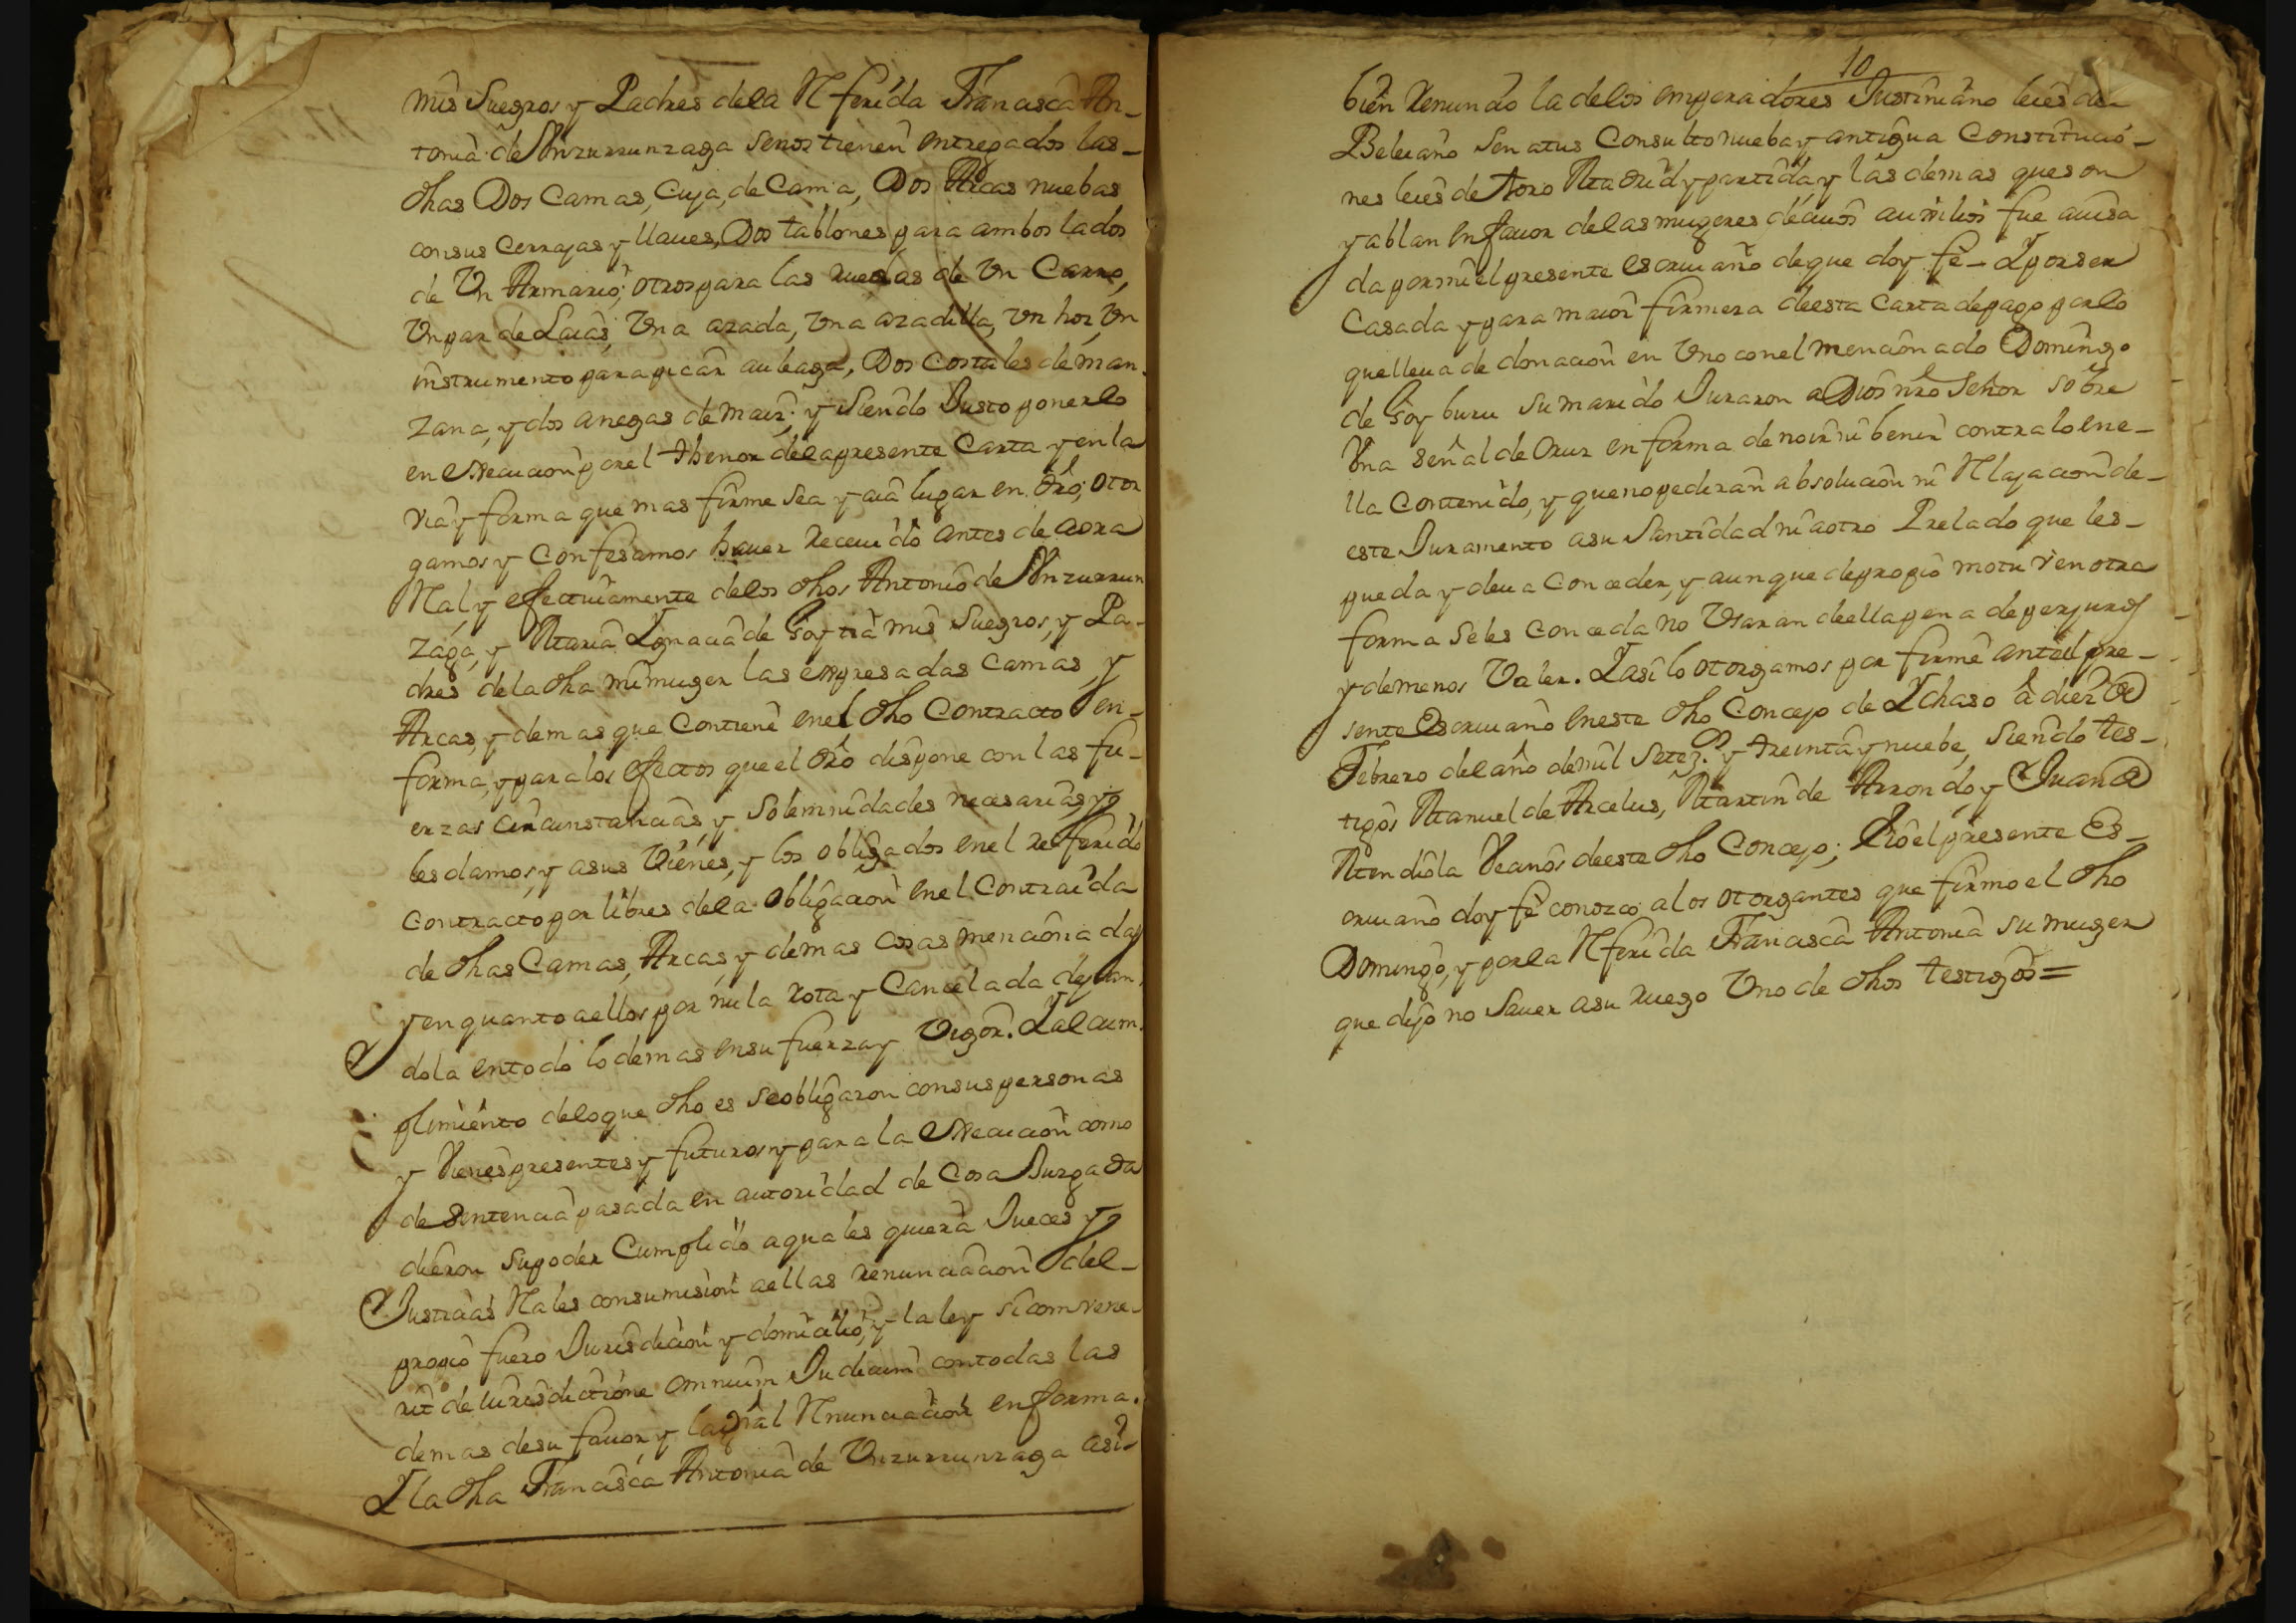 mis Suegros y Padres dela Referida Francisca An-
tonia de Unzurrunzaga senos tienen entregados las-
dhas Dos Camas, Cuja, de Cama, Dos Arcas nuebas
consus Cerrajas y llaues, Dos tablones para ambos lados
de Un Armario; otros para las ruedas de Un Carro,
Un par de Laias, Una azada, Una azadilla, Un hoz, Un
instrumento para picar aulaga, Dos Costales de man-
zana, y dos anegas de maiz; y siendo Justo ponerlo
en execucion por el thenor dela presente Carta y en la
via y forma que mas firme sea y aia lugar en dro; otor
gamos y Confesamos hauer receuido antes de aora
Real, y efectiuamente delos dhos Antonio de Unzurrun
zaga, y Maria Ygnacia de Goytia mis Suegros, y Pa-
dres dela dha mi muger las expresadas Camas, y
Arcas, y demas que Contiene enel dho Contracto en-
forma, y para los efectos que el dro dispone con las fu-
erzas circunstancias, y solemnidades necesarias, y
les damos, y asus Vienes, y los obligados enel referido
Contracto por libres dela obligacion enel Contraida
de dhas Camas, Arcas, y demas cosas mencionadas
y en quanto aellos por nula rota y Cancelada dejan-
dola entodo lo demas ensu fuerza y Vigor. Y al cum-
plimiento delo que dho es se obligaron consus personas
y Vienes presentes y futuros, y para la execucion como
de Sentencia pasada en autoridad de Cosa Juzgada
dieron su poder Cumplido a qualesquiera Jueces y
Justicias Reales con sumision aellas renunciacion del-
propio fuero Jurisdicion y domicilio, y la ley si convene-
rit de iurisdictione omnium Judicum con todas las
demas desu fauor y la gral Renunciacion en forma.
Y la dha Francisca Antonia de Unzurrunzaga asi-
10
bien renuncio la delos emperadores Justiniano leies de-
Beleiano Senatus Consulto nueba y antigua Constitucio-
nes leies de toro Madrid y partida y las demas que son
y ablan en fauor delas mugeres de cuios auxilios fue auisa
da por mi el presente escriuano de que doy fe - Y por ser
Casada y para maior firmeza de esta Carta de pago por lo
que lleua de donacion en Uno con el mencionado Domingo
de Goyburu su marido Juraron a Dios nro Señor sobre
Una señal de Cruz en forma de no ir ni benir contra lo ene-
lla Contenido, y que no pediran absolucion ni Relajacion de-
este Juramento asu Santidad ni aotro Prelado que les-
pueda y deua Conceder, y aunque de propio motu v en otra
forma se les Conceda no Usaran de ella pena de perjuros
y de menos Valer. Y asi lo otorgamos por firme ante el pre-
sente Escriuano en este dho Concejo de Ychaso a diez de
Febrero del año de mil setezs. y treinta y nuebe, siendo tes-
tigos Manuel de Arcelus, Martin de Arrondo y Juan de
Mendiola Vecinos de este dho Concejo; Yo el presente Es-
criuano doy fe conozco alos otorgantes que firmo el dho
Domingo, y por la Referida Francisca Antonia su muger
que dijo no Sauer asu ruego Uno de dhos testigos =